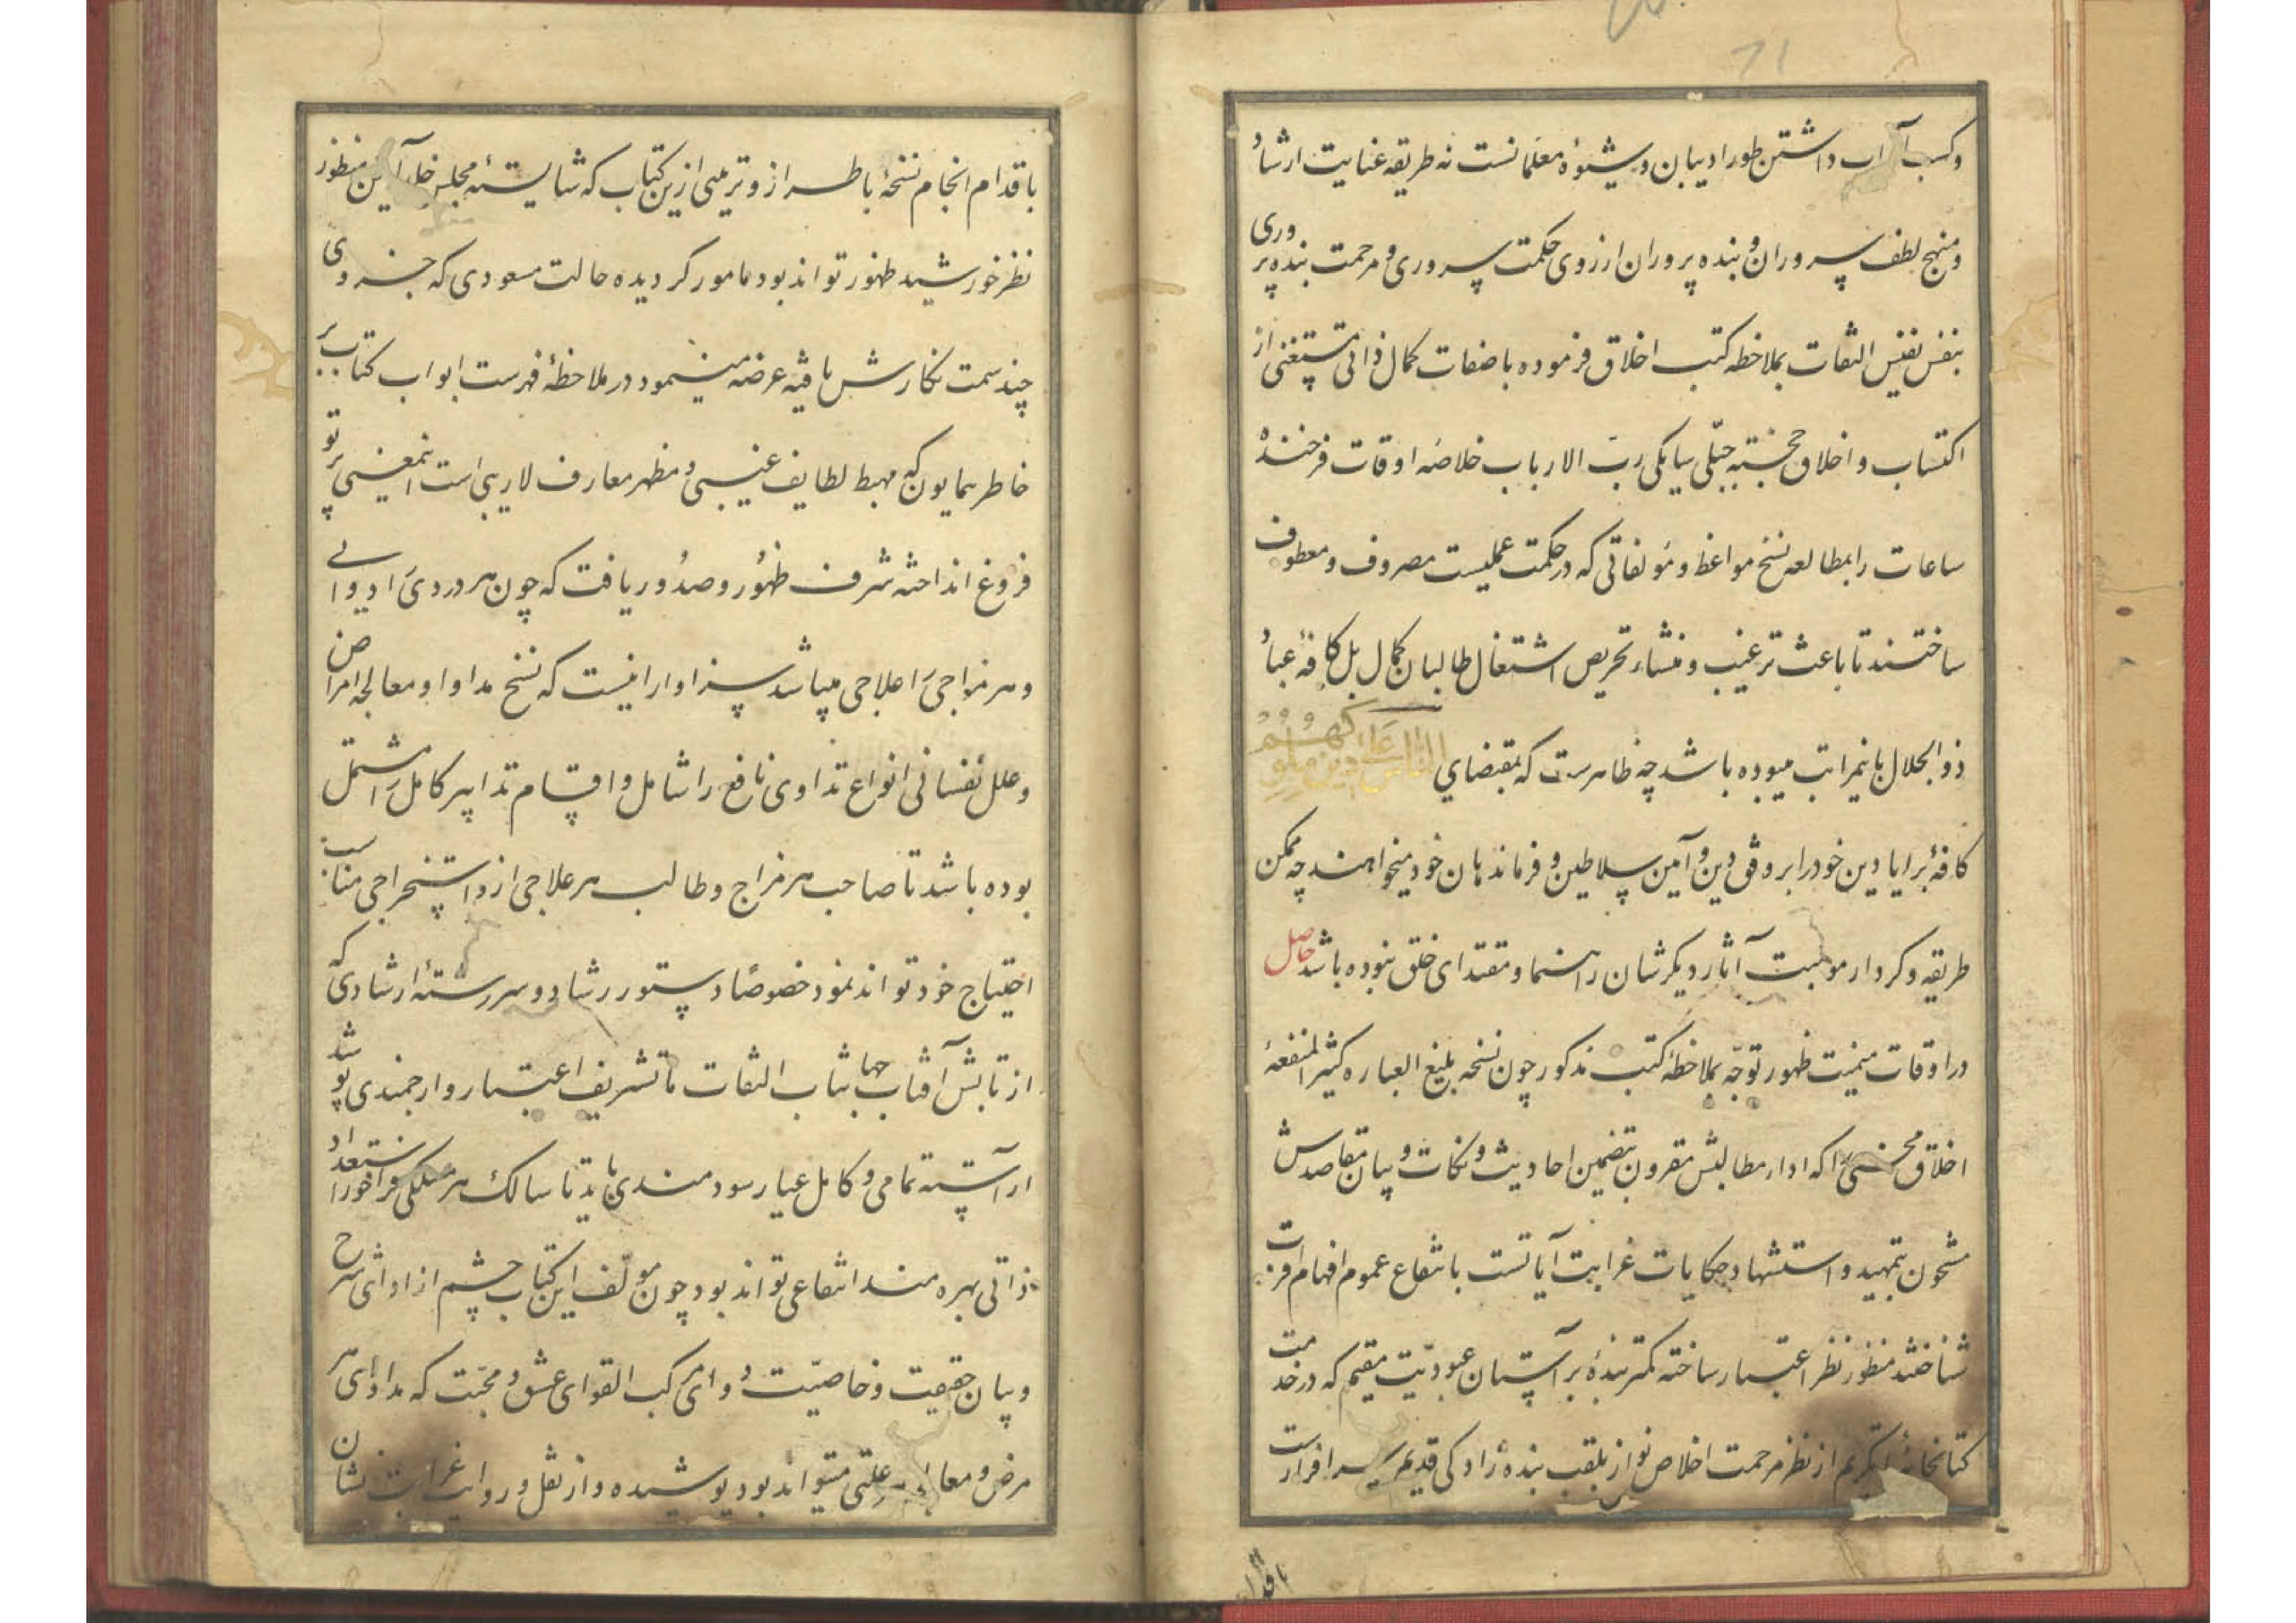 71
وکسب آداب داشتن طور ادیبان و شیوهٔ معلمانست نه طریقه عنایت ارشاد
و منهج لطف سروران و بنده پروران از روی حکمت سروری و مرحمت بنده پروری
بنفس نفیس التفات بملاحظه کتب اخلاق فرموده باصفات کمال ذاتی مستغنی از
اکتساب و اخلاق خجسته جبلّی بیانکی ربّ الارباب خلاصه اوقات فرخنده
ساعات را بمطالعه نسخ مواعظ و مؤلفاتی که در حکمت عملیست مصروف و معطوف
ساختند تا باعث ترغیب و منشاء تحریص اشتغال طالبان کمال بل کافهٔ عباد
ذو الجلال باینمراتب میبوده باشد چه ظاهرست که بمقتضای الناس علی دین ملوکهم
کافهٔ برایا دین خود را بر وفق دین و آیین سلاطین و فرماندهان خود میخواهند چه ممکن
طریقه و کردار موهبت آثار دیگرشان راهنما و مقتدای خلق نبوده باشد حاصل
در اوقات میمنت ظهور توجّه بملاحظهٔ کتب مذکور چون نسخه بلیغ العباره کثیر المنفعهٔ
اخلاق محسنی را که اداء مطالبش مقرون بتضمین احادیث و نکات و بیان مقاصدش
مشحون بتمهید و استشهاد حکایات غرابت آیاتست بانتفاع عموم افهام اقرب
شناختند منظور نظر اعتبار ساخته کمترینهٔ بر آستان عبودیّت مقیم که در خدمت
کتابخانهٔ از نظر مرحمت اخلاص نواز بلقب بنده زادگی قدیم سرافرازست
باقدام
باقدام انجام نسخهٔ باطراز و تزیینی ازین کتاب که شایستهٔ مجلس خلد آیین منظور
نظر خورشید ظهور تواند بود مامور گردیده حالت مسعودی که جزوی
چند سمت نگارش یافته عرضه مینمود در ملاحظهٔ فهرست ابواب کتاب بر
خاطر همایون که مهبط لطایف غیبی و مظهر معارف لاریبی است اینمعنی پرتو
فروغ انداخته شرف ظهور و صدور یافت که چون هر دردی را دوایی
و هر مزاجی را علاجی میباشد سزاوار انیست که نسخ مداوا و معالجه امراض
و علل نفسانی انواع تداوی نافع را شامل و اقسام تدابیر کامل را مشتمل
بوده باشد تا صاحب هر مزاج و طالب هر علاجی ازو استخراجی مناسب
احتیاج خود تواند نمود خصوصاً دستور رشاد و سررشتهٔ ارشادی که
از تابش آفتاب جهانتاب التفات ما تشریف اعتبار و ارجمندی پوشد
آراسته تمامی و کامل عیار سودمندی باید تا سالک هر مسلکی فراخور استعداد
ذاتی بهره مند انتفاعی تواند بود چون مولّف این کتاب چشم از ادای شرح
و بیان حقیقت و خاصیّت دوای مرکب القوای عشق و محبّت که مداوای هر
مرض و علتی میتواند بود پوشیده و از نقل و روایت غرابت نشان